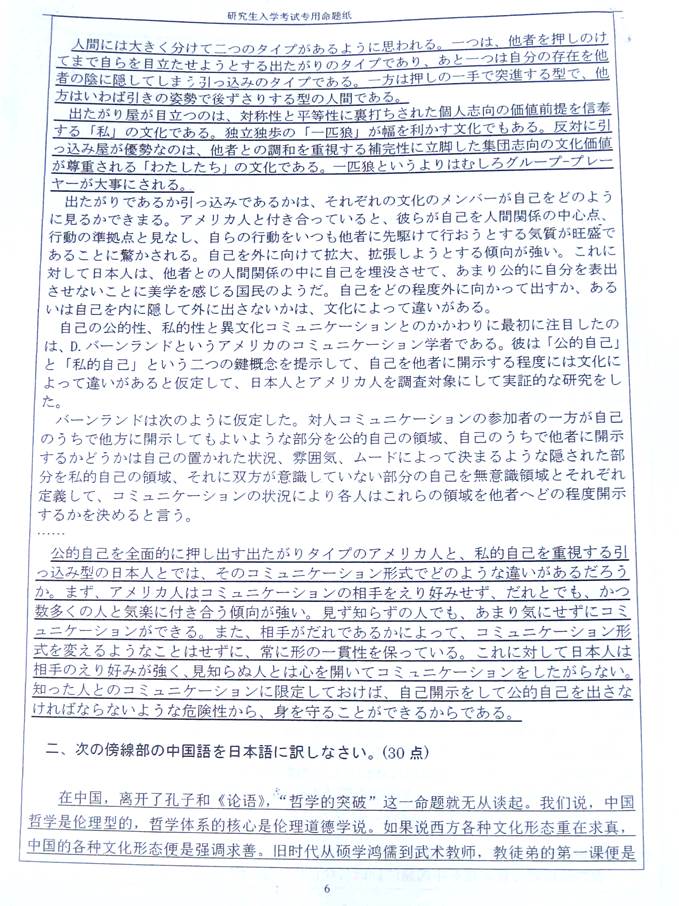 研究生入学考试专用命题纸
人間には大きく分けて二つのタイプがあるように思われる。一つは、他者を押しのけ
てまで自らを目立たせようとする出たがりのタイプであり、あと一つは自分の存在を他
者の陰に隠してしまう引っ込みのタイプである。一方は押しの一手で突進する型で、他
方はいわば引きの姿勢で後ずさりする型の人間である。
出たがり屋が目立つのは、対称性と平等性に裏打ちされた個人志向の価値前提を信奉
する「私」の文化である。独立独歩の「一匹狼」が幅を利かす文化でもある。反対に引
っ込み屋が優勢なのは、他者との調和を重視する補完性に立脚した集団志向の文化価値
が尊重される「わたしたち」の文化である。一匹狼というよりはむしろグループ-プレー
ヤーが大事にされる。
出たがりであるか引っ込みであるかは、それぞれの文化のメンバーが自己をどのよう
に見るかできまる。アメリカ人と付き合っていると、彼らが自己を人間関係の中心点、
行動の準拠点と見なし、自らの行動をいつも他者に先駆けて行おうとする気質が旺盛で
あることに驚かされる。自己を外に向けて拡大、拡張しようとする傾向が強い。これに
対して日本人は、他者との人間関係の中に自己を埋没させて、あまり公的に自分を表出
させないことに美学を感じる国民のようだ。自己をどの程度外に向かって出すか、ある
いは自己を内に隠して外に出さないかは、文化によって違いがある。
自己の公的性、私的性と異文化コミュニケーションとのかかわりに最初に注目したの
は、D.バーンランドというアメリカのコミュニケーション学者である。彼は「公的自己」
と「私的自己」という二つの鍵概念を提示して、自己を他者に開示する程度には文化に
よって違いがあると仮定して、日本人とアメリカ人を調査対象にして実証的な研究をし
た。
バーンランドは次のように仮定した。対人コミュニケーションの参加者の一方が自己
のうちで他方に開示してもよいような部分を公的自己の領域、自己のうちで他者に開示
するかどうかは自己の置かれた状況、雰囲気、ムードによって決まるような隠された部
分を私的自己の領域、それに双方が意識していない部分の自己を無意識領域とそれぞれ
定義して、コミュニケーションの状況により各人はこれらの領域を他者へどの程度開示
するかを決めると言う。
……
公的自己を全面的に押し出す出たがりタイプのアメリカ人と、私的自己を重視する引
っ込み型の日本人とでは、そのコミュニケーション形式でどのような違いがあるだろう
か。まず、アメリカ人はコミュニケーションの相手をえり好みせず、だれとでも、かつ
数多くの人と気楽に付き合う傾向が強い。見ず知らずの人でも、あまり気にせずにコミ
ュニケーションができる。また、相手がだれであるかによって、コミュニケーション形
式を変えるようなことはせずに、常に形の一貫性を保っている。これに対して日本人は
相手のえり好みが強く、見知らぬ人とは心を開いてコミュニケーションをしたがらない。
知った人とのコミュニケーションに限定しておけば、自己開示をして公的自己を出さな
ければならないような危険性から、身を守ることができるからである。
二、次の傍線部の中国語を日本語に訳しなさい。(30 点)
在中国，离开了孔子和《论语》，“哲学的突破”这一命题就无从谈起。我们说，中国
哲学是伦理型的，哲学体系的核心是伦理道德学说。如果说西方各种文化形态重在求真，
中国的各种文化形态便是强调求善。旧时代从硕学鸿儒到武术教师，教徒弟的第一课便是
6